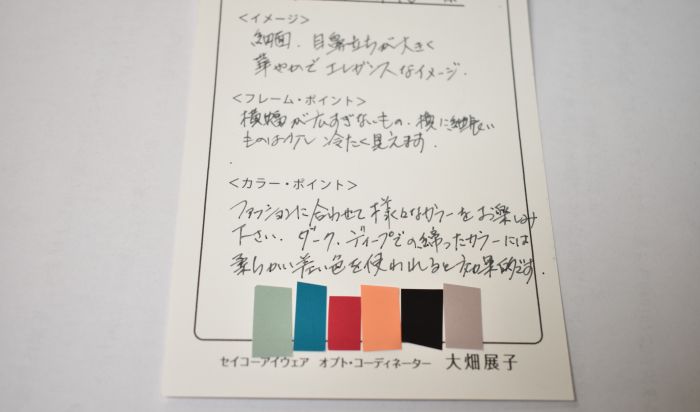 ＜イメージ＞
細面、目鼻立ちが大きく
華やかで エレガンスなイメージ.
＜フレーム・ポイント＞
横幅が広すぎないもの. 横に細長い
ものは 冷たく見えます.
＜カラー・ポイント＞
ファッションに合わせて 様々なカラーを お楽しみ
下さい. ダーク、ディープの締ったカラーには
柔らかい 差し色を使われると効果的です.
セイコーアイウェア オプト・コーディネーター 大畑展子